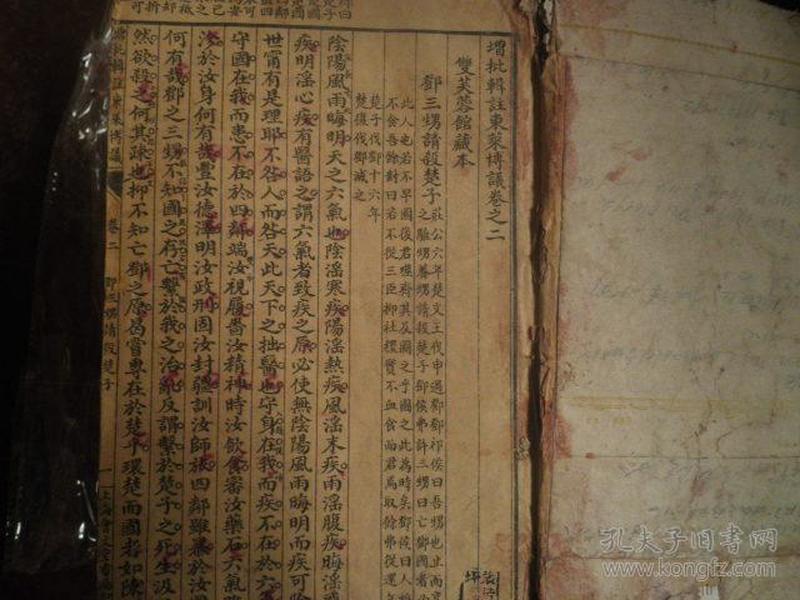 增批輯註東萊博議卷之二
雙芙蓉館藏本
鄧三甥請殺楚子
莊公六年楚文王伐申過鄧鄧祁侯曰吾甥也止而享
之騅甥養甥請殺楚子鄧侯弗許三甥曰亡鄧國者必
此人也若不早圖後君噬齊其及圖之乎圖之此為時矣鄧侯曰人將
不食吾餘對曰若不從三臣抑社稷實不血食而君焉取餘弗從還年
楚子伐鄧十六年
楚復伐鄧滅之
陰陽風雨晦明天之六氣也陰淫寒疾陽淫熱疾風淫末疾雨淫腹疾晦淫惑
疾明淫心疾有醫語之謂六氣者致疾之原必使無陰陽風雨晦明而疾可除
世甯有是理耶不咎人而咎天此天下之拙醫也守身在我而疾不在於六
守國在我而患不在於四鄰端汝視履嗇汝精神時汝飲食審汝藥石六氣
沴於汝身何有哉豐汝德澤明汝政刑固汝封疆訓汝師旅四鄰雖暴於汝
何有哉鄧之三甥不知國之存亡繫於我之治亂反謂繫於楚子之死生汲
然欲殺之何其疎也抑不知亡鄧之原曷嘗專在於楚乎環楚而國者如陳
增批輯註東萊博議
卷二
鄧三甥請殺楚子
一
孔夫子旧书网
www.kongfz.com